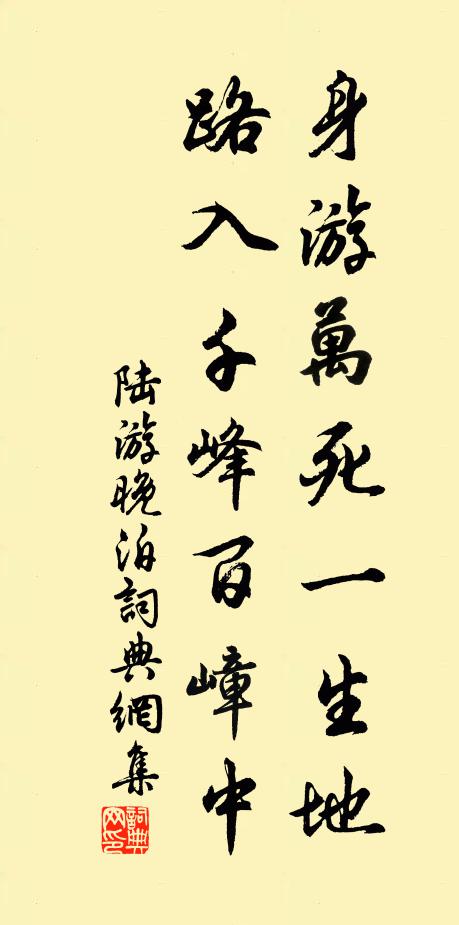 身游萬死一生地
路入千峰百嶂中
陆游晚泊詞典網集
詞典
网印